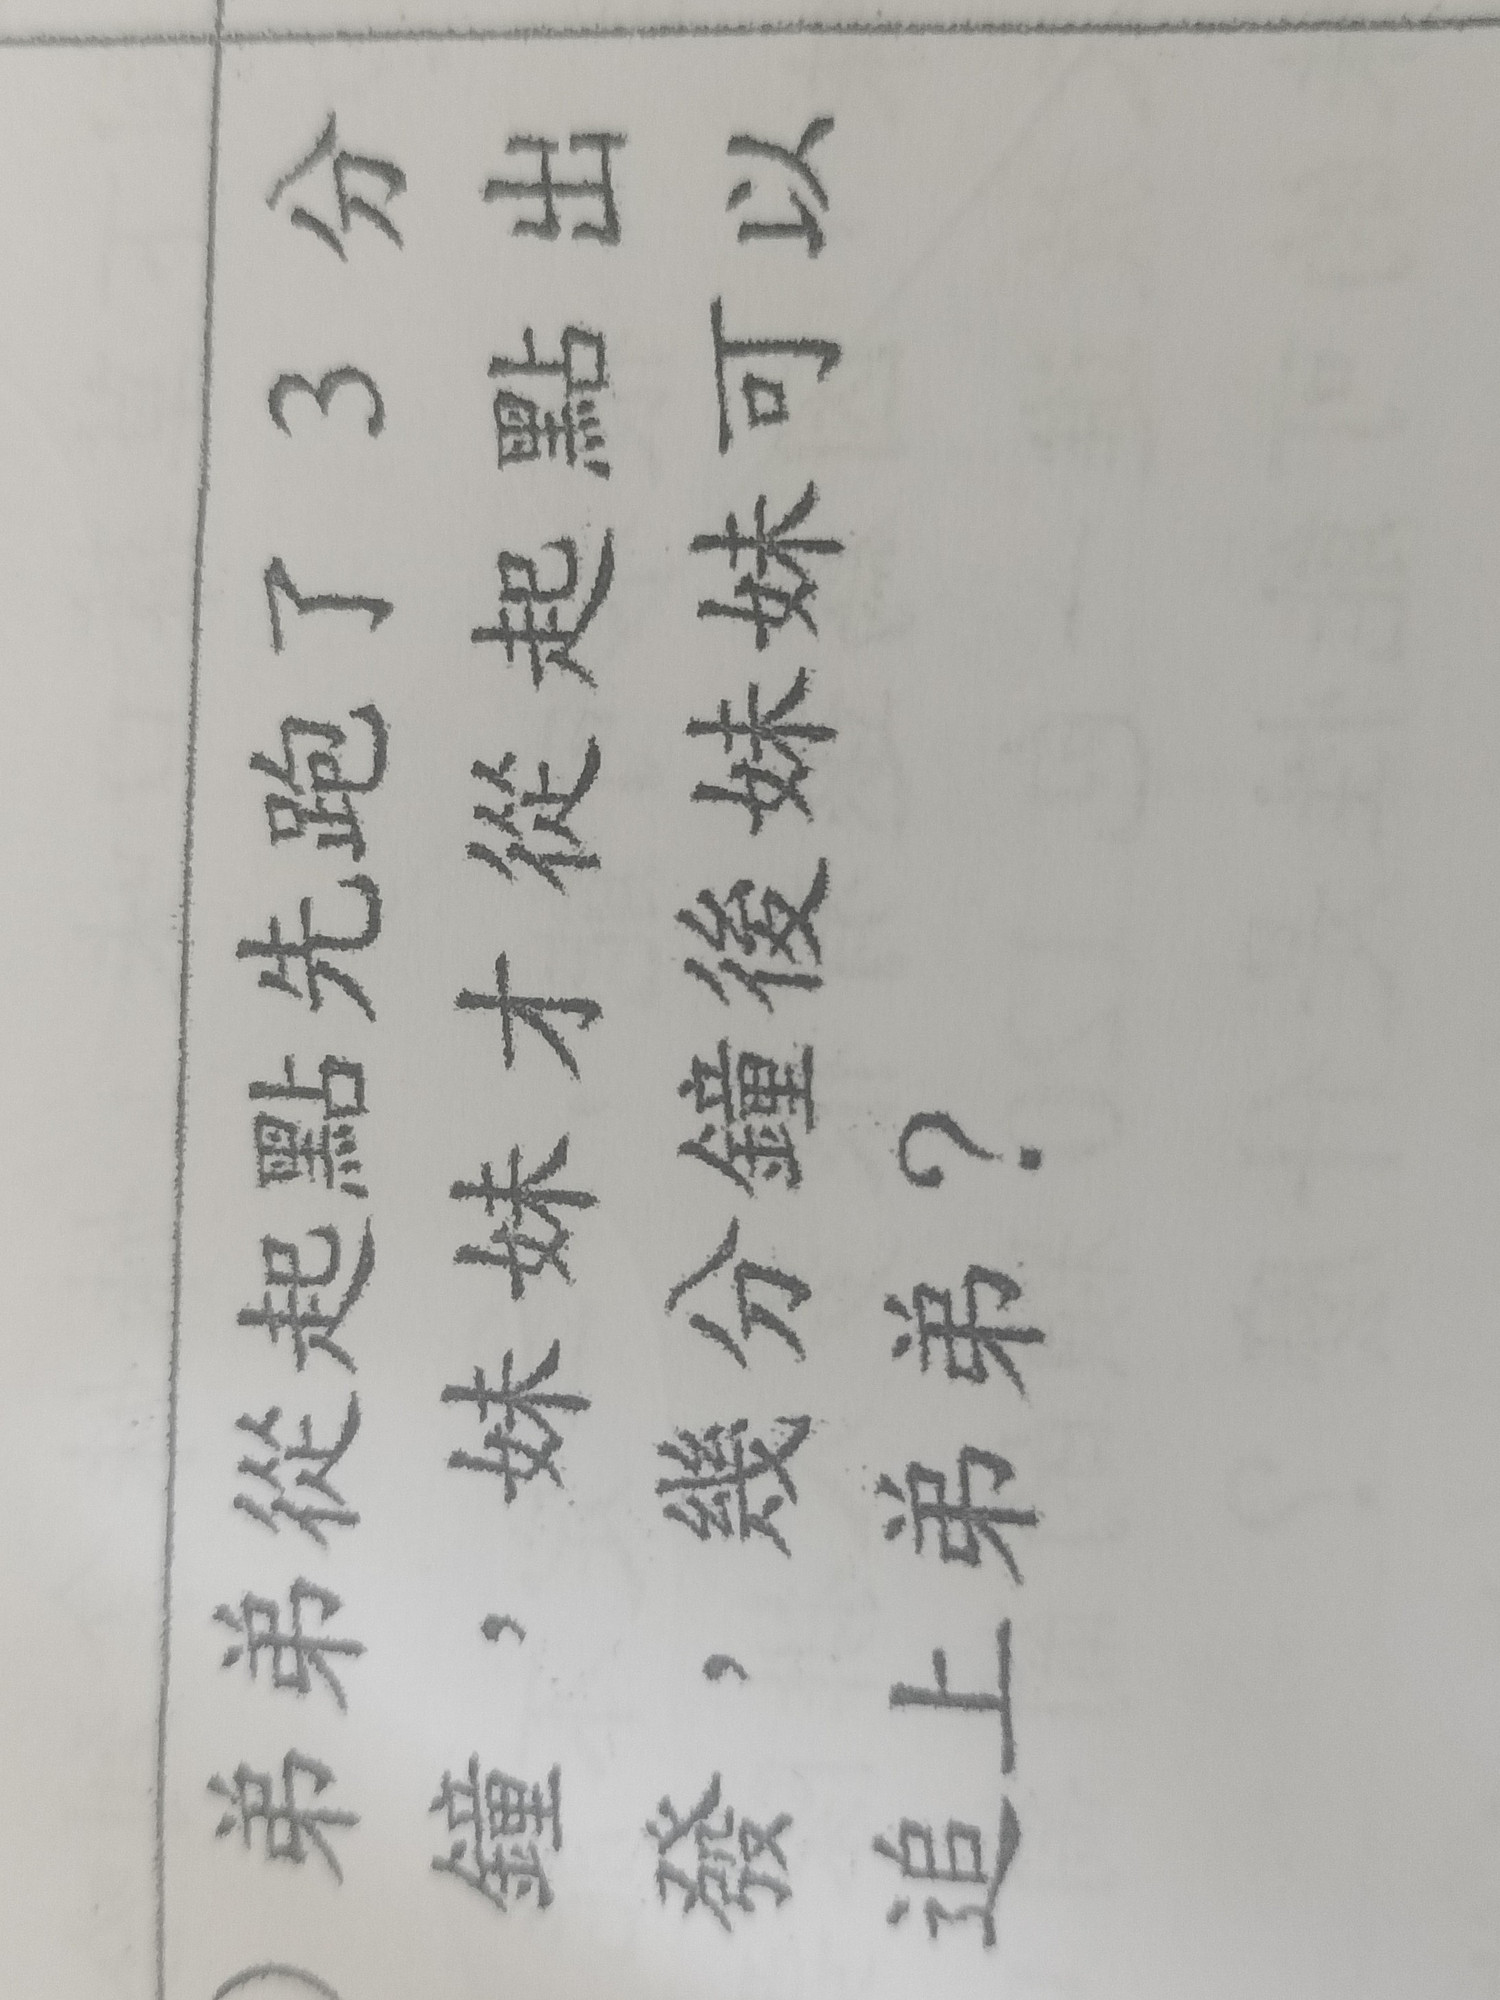 弟弟從起點先跑了3分
鐘，妹妹才從起點出
發，幾分鐘後妹妹可以
追上弟弟？